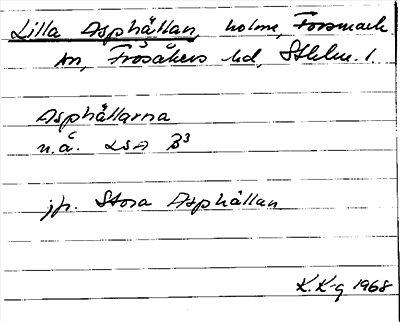 Lilla Asphällan, holme, Forsmark
sn, Frösåkers hd, Sthlm. l.
Asphällarna
u.å. LSA B3
jfr. Stora Asphällan
K. K-g 1968